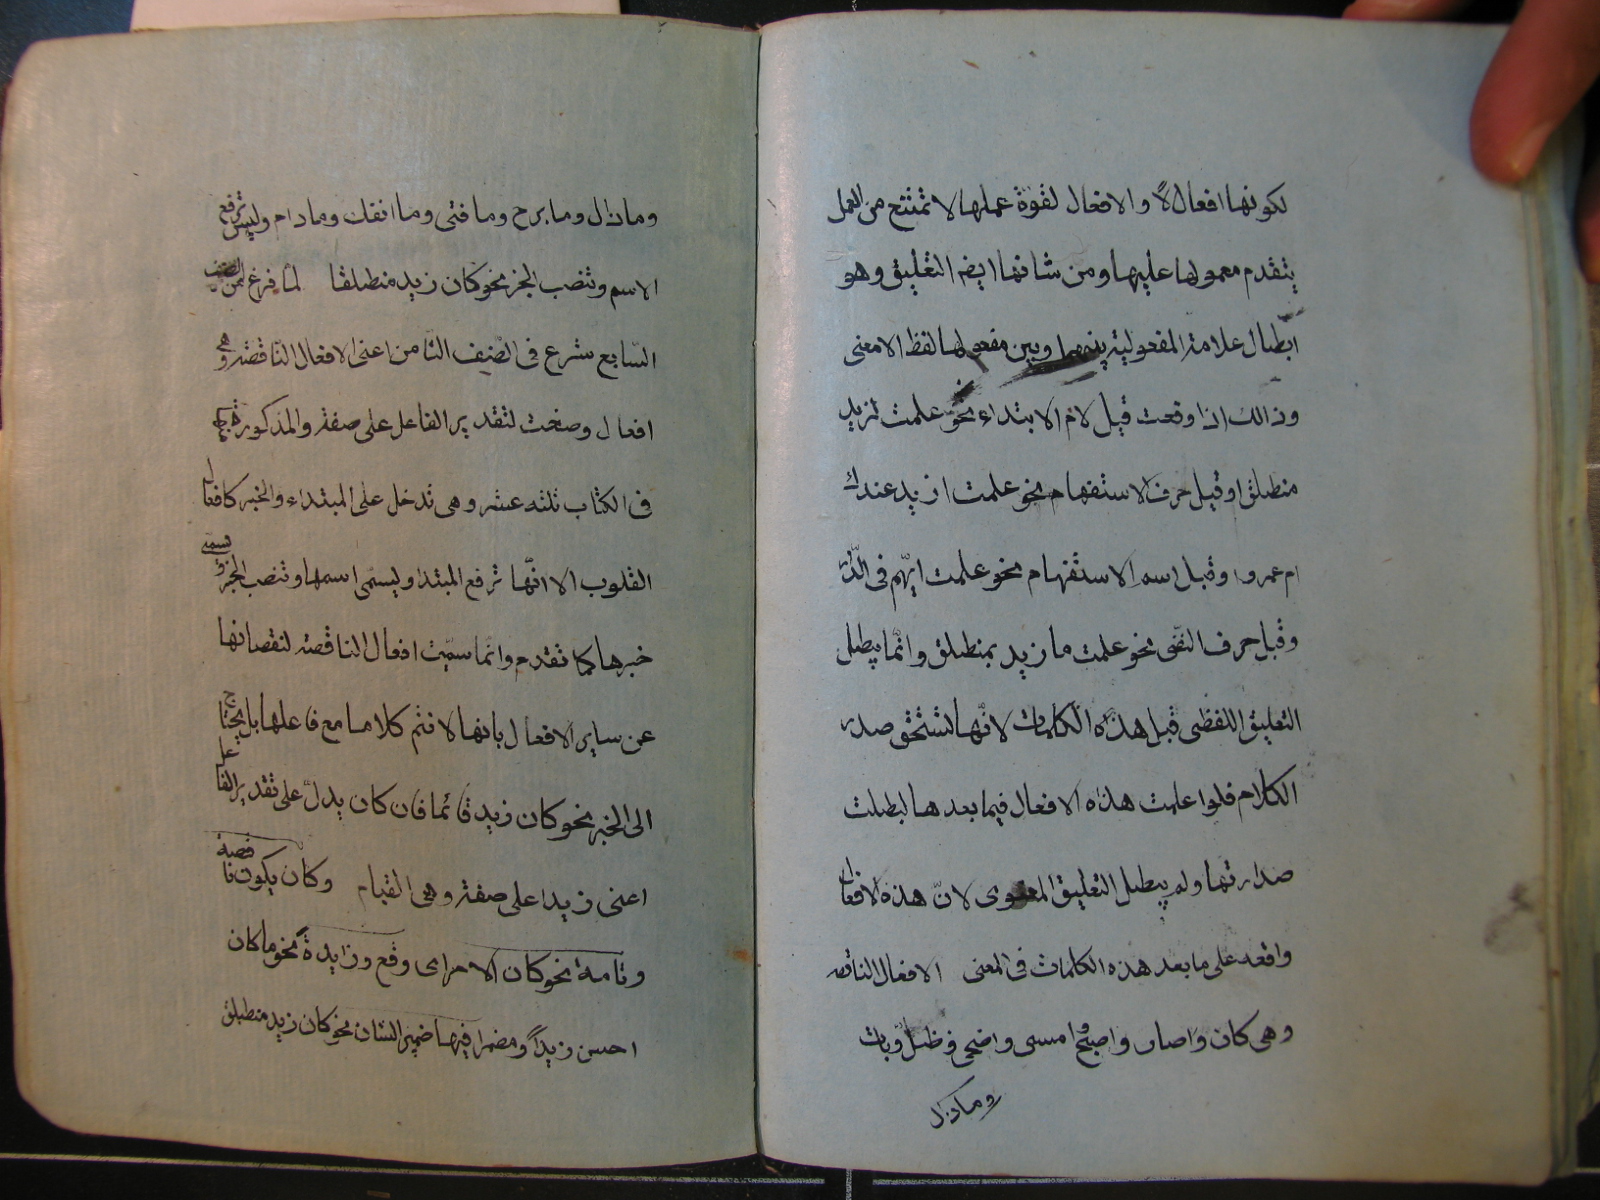 لكونها افعالا والافعال لقوة عملها لا تمتنع من العمل
بتقدم معمولها عليها ومن شانها ايضا التعليق وهو
ابطال علامة المفعولية بينهما وبين مفعولها لفظا لا معنى
وذالك اذا وقعت قبل لام الابتداء نحو علمت لزيد
منطلق او قبل حرف الاستفهام نحو علمت ازيد عندك
ام عمرو او قبل اسم الاستفهام نحو علمت ايهم فى الدار
وقبل حرف النفى نحو علمت ما زيد بمنطلق وانّما يبطل
التعليق اللفظى قبل هذه الكلمات لانّها تستحق صدر
الكلام فلو اعلمت هذه الافعال فيما بعدها لبطلت
صدارتها ولم يبطل التعليق المعنوى لانّ هذه الافعال
واقعه على ما بعد هذه الكلمات فى المعنى الافعال الناقصه
وهى كان وصار واصبح وامسى واضحى وظلّ وبات
وما زال
وما زال وما برح وما فتى وما انفك وما دام وليس ترفع
الاسم وتنصب الخبر نحو كان زيد منطلقا لما فرغ من الصنف
السّابع شرع فى الصّنف الثامن اعنى الافعال النّاقصه وهى
افعال وضعت لتقدير الفاعل على صفة والمذكورة منها
فى الكتاب ثلثه عشر وهى تدخل على المبتداء والخبر كافعال
القلوب الا انّها ترفع المبتدا ويسمّى اسمها وتنصب الخبر ويسمّى
خبرها كما تقدم وانّما سمّيت افعال الناقصه لنقصانها
عن ساير الافعال بانها لا تتم كلاما مع فاعلها بل يحتاج
الى الخبر نحو كان زيد قائما فان كان يدلّ على تقدير الفاعل
اعنى زيدا على صفة وهى القيام وكان يكون ناقصة
وتامة نحو كان الامر اى وقع وزايدة نحو ما كان
احسن زيداً ومضمرا فيها ضمير الشان نحو كان زيد منطلق